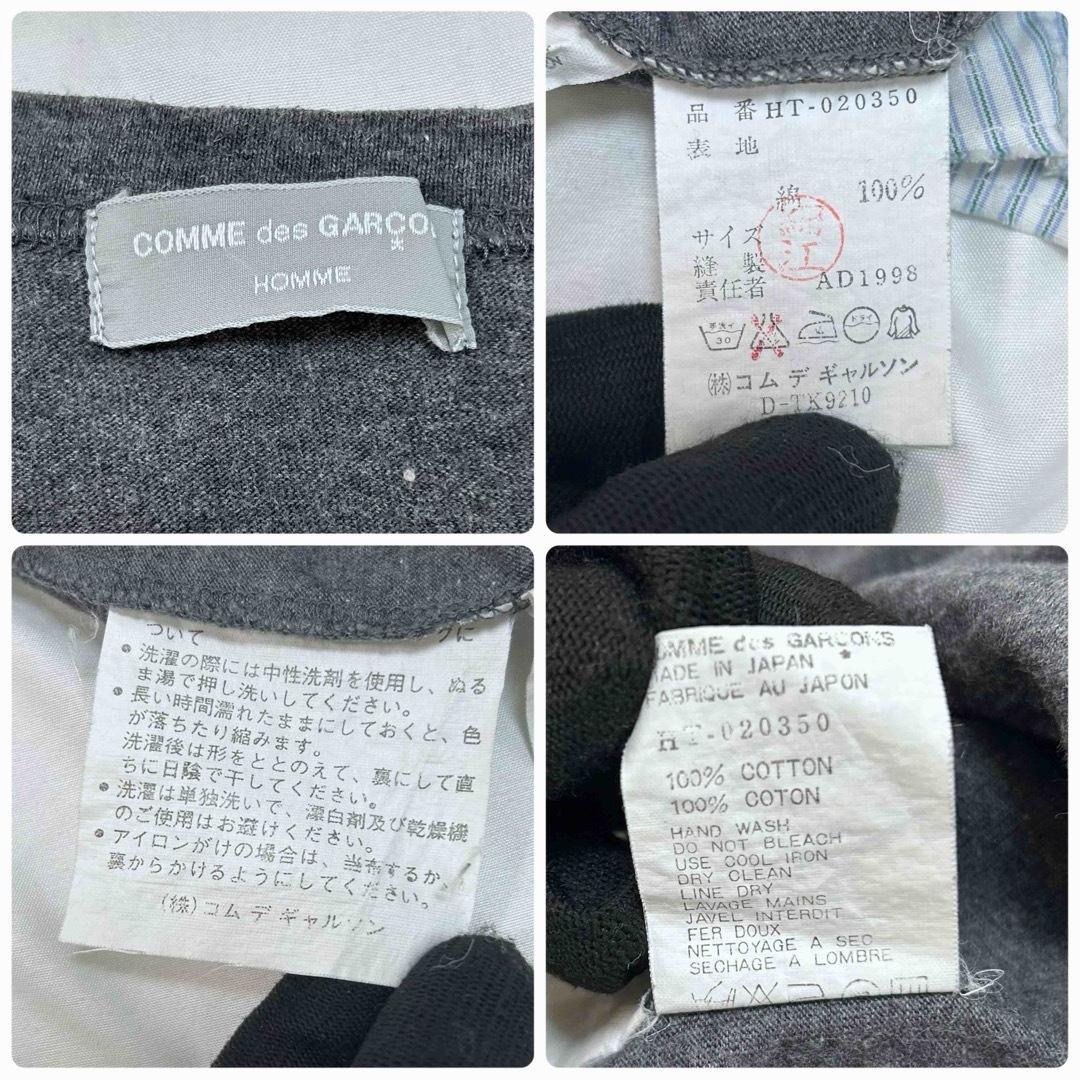 COMME des GARÇO
HOMME
品 番 HT-020350
表 地
綿 100%
サイズ
縫 製
責任者 AD1998
江
手洗イ
30
ドライ
㈱コム デ ギャルソン
D-TK9210
ついて
・洗濯の際には中性洗剤を使用し、ぬる
ま湯で押し洗いしてください。
・長い時間濡れたままにしておくと、色
が落ちたり縮みます。
洗濯後は形をととのえて、裏にして直
ちに日陰で干してください。
・洗濯は単独洗いで、漂白剤及び乾燥機
のご使用はお避けください。
・アイロンがけの場合は、当布するか、
裏からかけるようにしてください。
㈱コム デ ギャルソン
OMME des GARÇONS
MADE IN JAPAN
FABRIQUE AU JAPON
HT-020350
100% COTTON
100% COTON
HAND WASH
DO NOT BLEACH
USE COOL IRON
DRY CLEAN
LINE DRY
LAVAGE MAINS
JAVEL INTERDIT
FER DOUX
NETTOYAGE A SEC
SECHAGE A LOMBRE